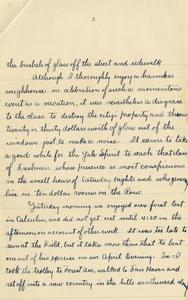 2
the bushels of glass off the street and sidewalk
Although I thoroughly enjoy a harmless
roughhouse in celebration of such a momentous
event as a vacation, it was nevertheless a disgrace
to the class to destroy the city's property and throw
twenty or thirty dollars worth of glass out of the
windows just to make a noise. It seems to take
a good while for the Yale Spirit to reach that class
of Freshmen whose presence is most conspicuous
in the small hours of Saturday nights and who generally
live in ten dollar rooms on the Row
Yesterday morning we enjoyed our first test
in Calculus, and did not get out until 4:20 in the
afternoon on account of other work. It was too late to
row at the Field, but it takes more than that to beat
one out of his exercise on an April Evening. So I
took the trolley to Forest Ave, walked to Fair Haven and
set off into a new country in the hills southward of